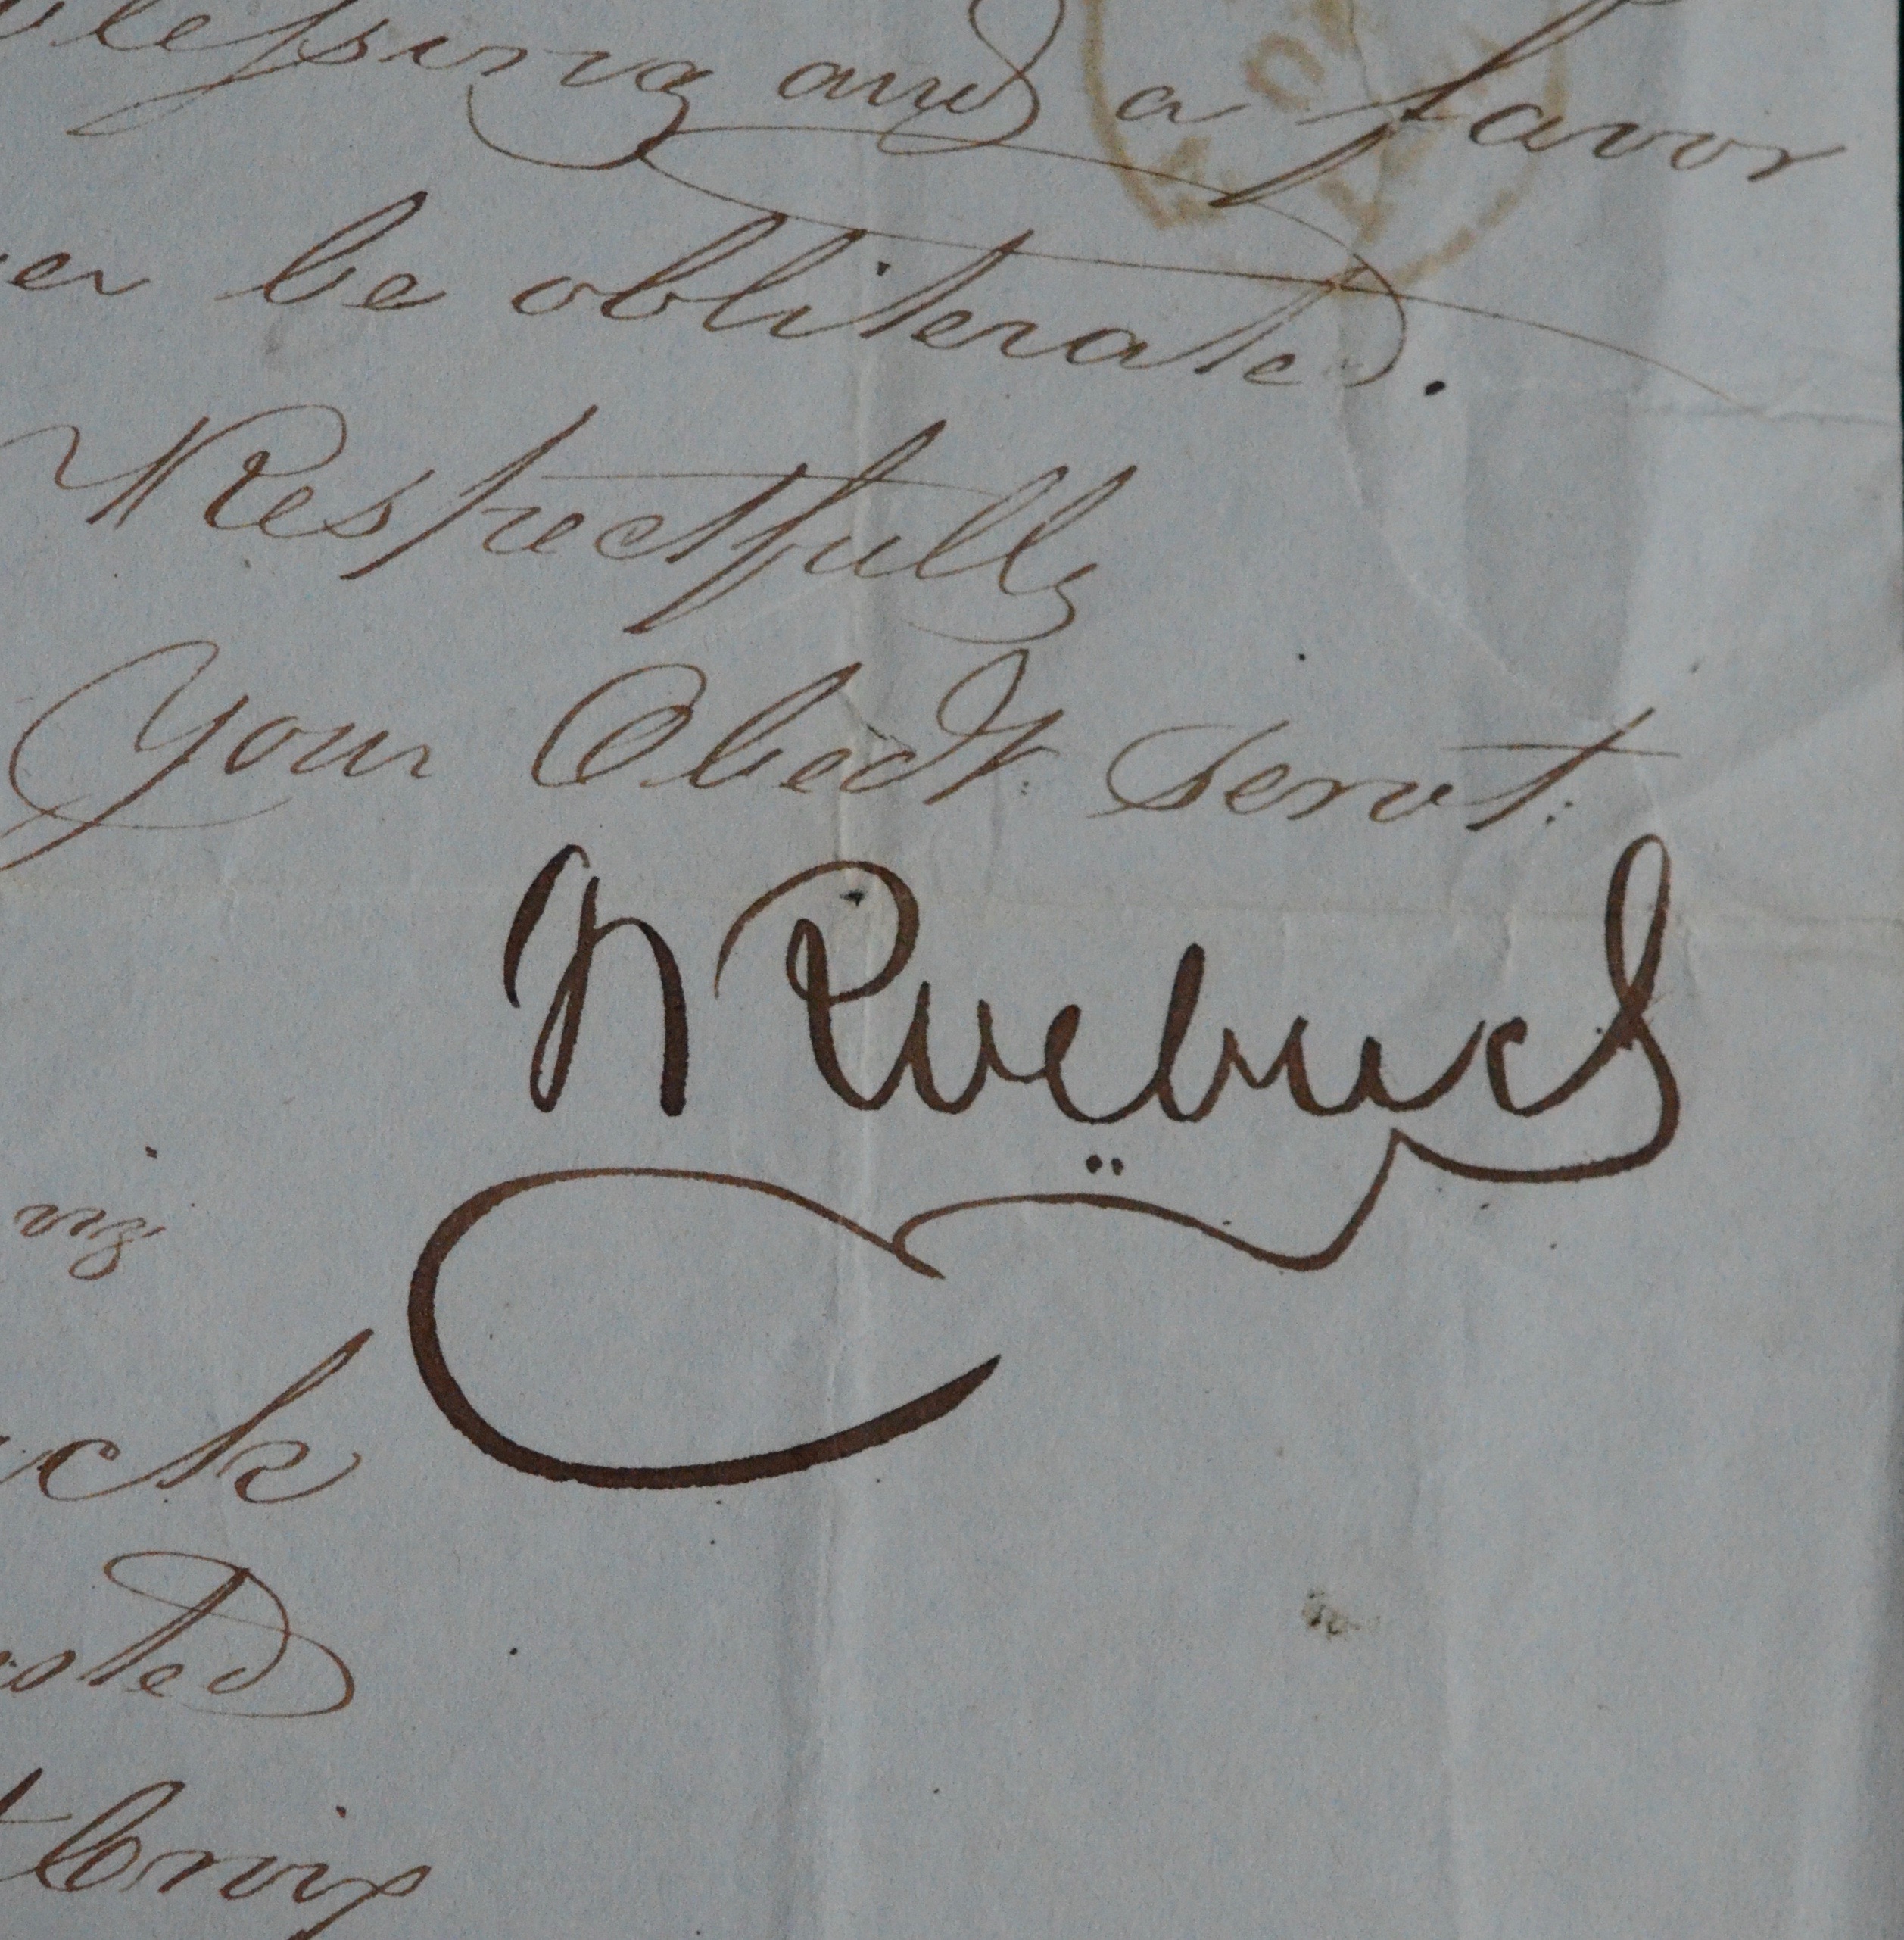 blessing and a favor
er be obliterated.
Respectfully
Your Obedt. Servt.
N Roebuck
viz
uck
oted
t Croix